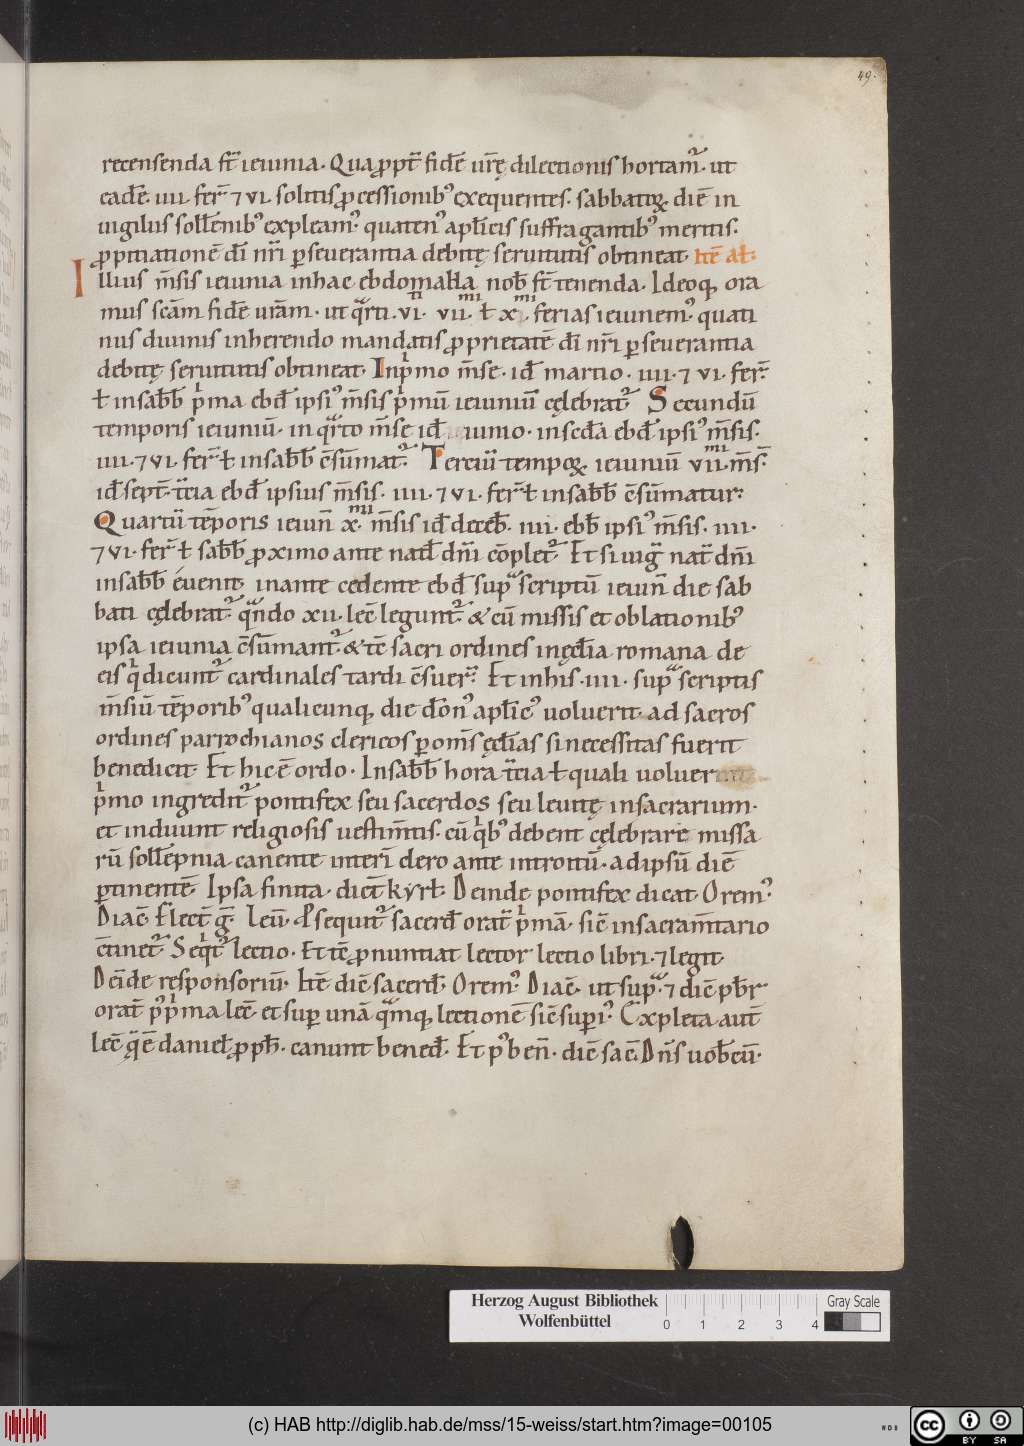 49.
recensenda st̄ ieiunia. Quaꝓpt̄ fidē ur̄ę dilectionis hortam᷒. ut
eadē. iiii. fer̄ ⁊ vi. solitis ꝓcessionib᷒ exequentes. sabbatiq; diē in
uigiliis soll̄enib᷒ expleam᷒. quaten᷒ apl̄icis suffragantib᷒ meritis.
ꝓpitiationē dī nr̄i ꝑseuerantia debitę seruitutis obtineat. Itē al̄.
Illius m̄sis ieiunia inhac ebdomaꝉla nob̄ st̄ tenenda. Ideoq; ora
mus scām fidē urām. ut qͣrti. vi. vii.mi ꝉ x.mi ferias ieiunem᷒. quati
nus diuinis inherendo mandatis ꝓprietatē dī nr̄i ꝑseuerantia
debitę seruitutis obtineat. Inpͥmo m̄se. id̄ martio. iiii. ⁊ vi. fer̄.
ꝉ insab̄b pͥma ebd̄ ipsi᷒ m̄sis pͥmū ieiuniū cęlebrat᷒. Secundū
temporis ieiuniū. in qͣrto m̄se id̄ iunio. insed̄a ebd̄ ipsi᷒ m̄sis.
iiii. ⁊ vi. fer̄ ꝉ insab̄b c̄sūmat᷒. Terciū tempoꝝ ieiuniū vii.mi m̄s̄.
id̄ sept̄. t̄cia ebd̄ ipsius m̄sis. iiii. ⁊ vi. fer̄ ꝉ insab̄b c̄sūmatur.
Quartū tēporis ieiun̄ x.mi m̄sis id̄ deceb̄. iiii. ebb̄ ipsi᷒ m̄sis. iiii.
⁊ vi. fer̄ ꝉ sab̄b ꝓximo ante natl̄ dn̄i cōplet᷒. Et si uigl̄ nat̄ dn̄i
insab̄b éuenit. inante cedente ebd̄ supͣscriptū ieiun̄ die sab
bati cęlebrat᷒. qͣndo xii. lec̄ legunt᷒. & cū missis et oblationib᷒
ipsa ieiunia c̄sūmant᷒. & tc̄ sacri ordines inęcl̄ia romana de
eis qͥ dicunt᷒ cardinales tardi c̄suer̄. Et inhis. iiii. supͣscriptis
m̄siū tēporib᷒ qualicunq; die dōn᷒ apl̄ic᷒ uoluerit. ad sacros
ordines parrochianos clericos ꝑ om̄s ęcl̄ias si necessitas fuerit
benedicit. Et hic ē ordo. Insab̄b hora t̄cia ꝉ quali uoluer
pͥmo ingredit᷒ pontifex seu sacerdos seu leuitę insacrarium.
et induunt religiosis uestim̄tis. cū qͥb᷒ debent cęlebrare missa
rū soll̄epnia canente interī clero ante introitū. adipsū diē
ꝑtinentē. Ipsa finita. dicit̄ kyrł. Deinde pontifex dicat. Orem᷒.
Diac̄. Flect̄ g̅. Leū. Psequit᷒ sacerd̄ orat̄ pͥmā. sic̄ insacram̄tario
c̄tinet᷒. Seqͥt᷒ lectio. Et tc̄ ꝓnuntiat lector lectio libri. ⁊ legit.
Deīde responsoriū. Itē dic̄ sacerd̄. Orem᷒. Diac̄. ut supͣ. ⁊ dic̄ pb̄r
orat̄ p᷒pͥma lec̄. et suꝑ unā qͣmq; lectionē sic̄ suꝑi᷒. Expleta aut̄
lec̄ q̄ ē danieł ꝓph̄. canunt bened̄. Et p᷒ ben̄. dic̄ sac̄. Dn̄s uob̄cū.
Herzog August Bibliothek
Wolfenbüttel
0 1 2 3 4
Gray Scale
(c) HAB http://diglib.hab.de/mss/15-weiss/start.htm?image=00105
WDB
cc BY SA